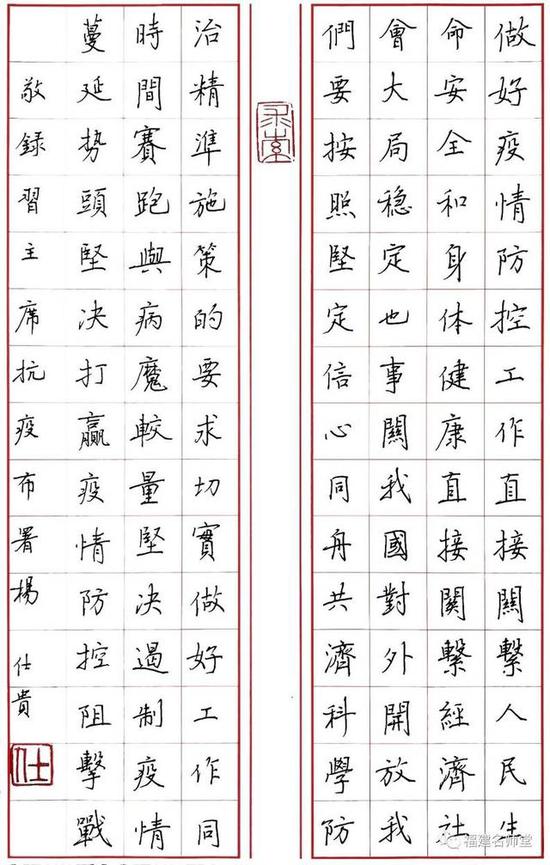 做好疫情防控工作直接關繫人民生
命安全和身体健康直接關繫經濟社
會大局穏定也事關我國對外開放我
們要按照堅定信心同舟共濟科學防
治精準施策的要求切實做好工作同
時間賽跑與病魔較量堅决遏制疫情
蔓延勢頭堅决打贏疫情防控阻擊戰
敬録習主席抗疫布署楊仕貴
仕
福建名师堂